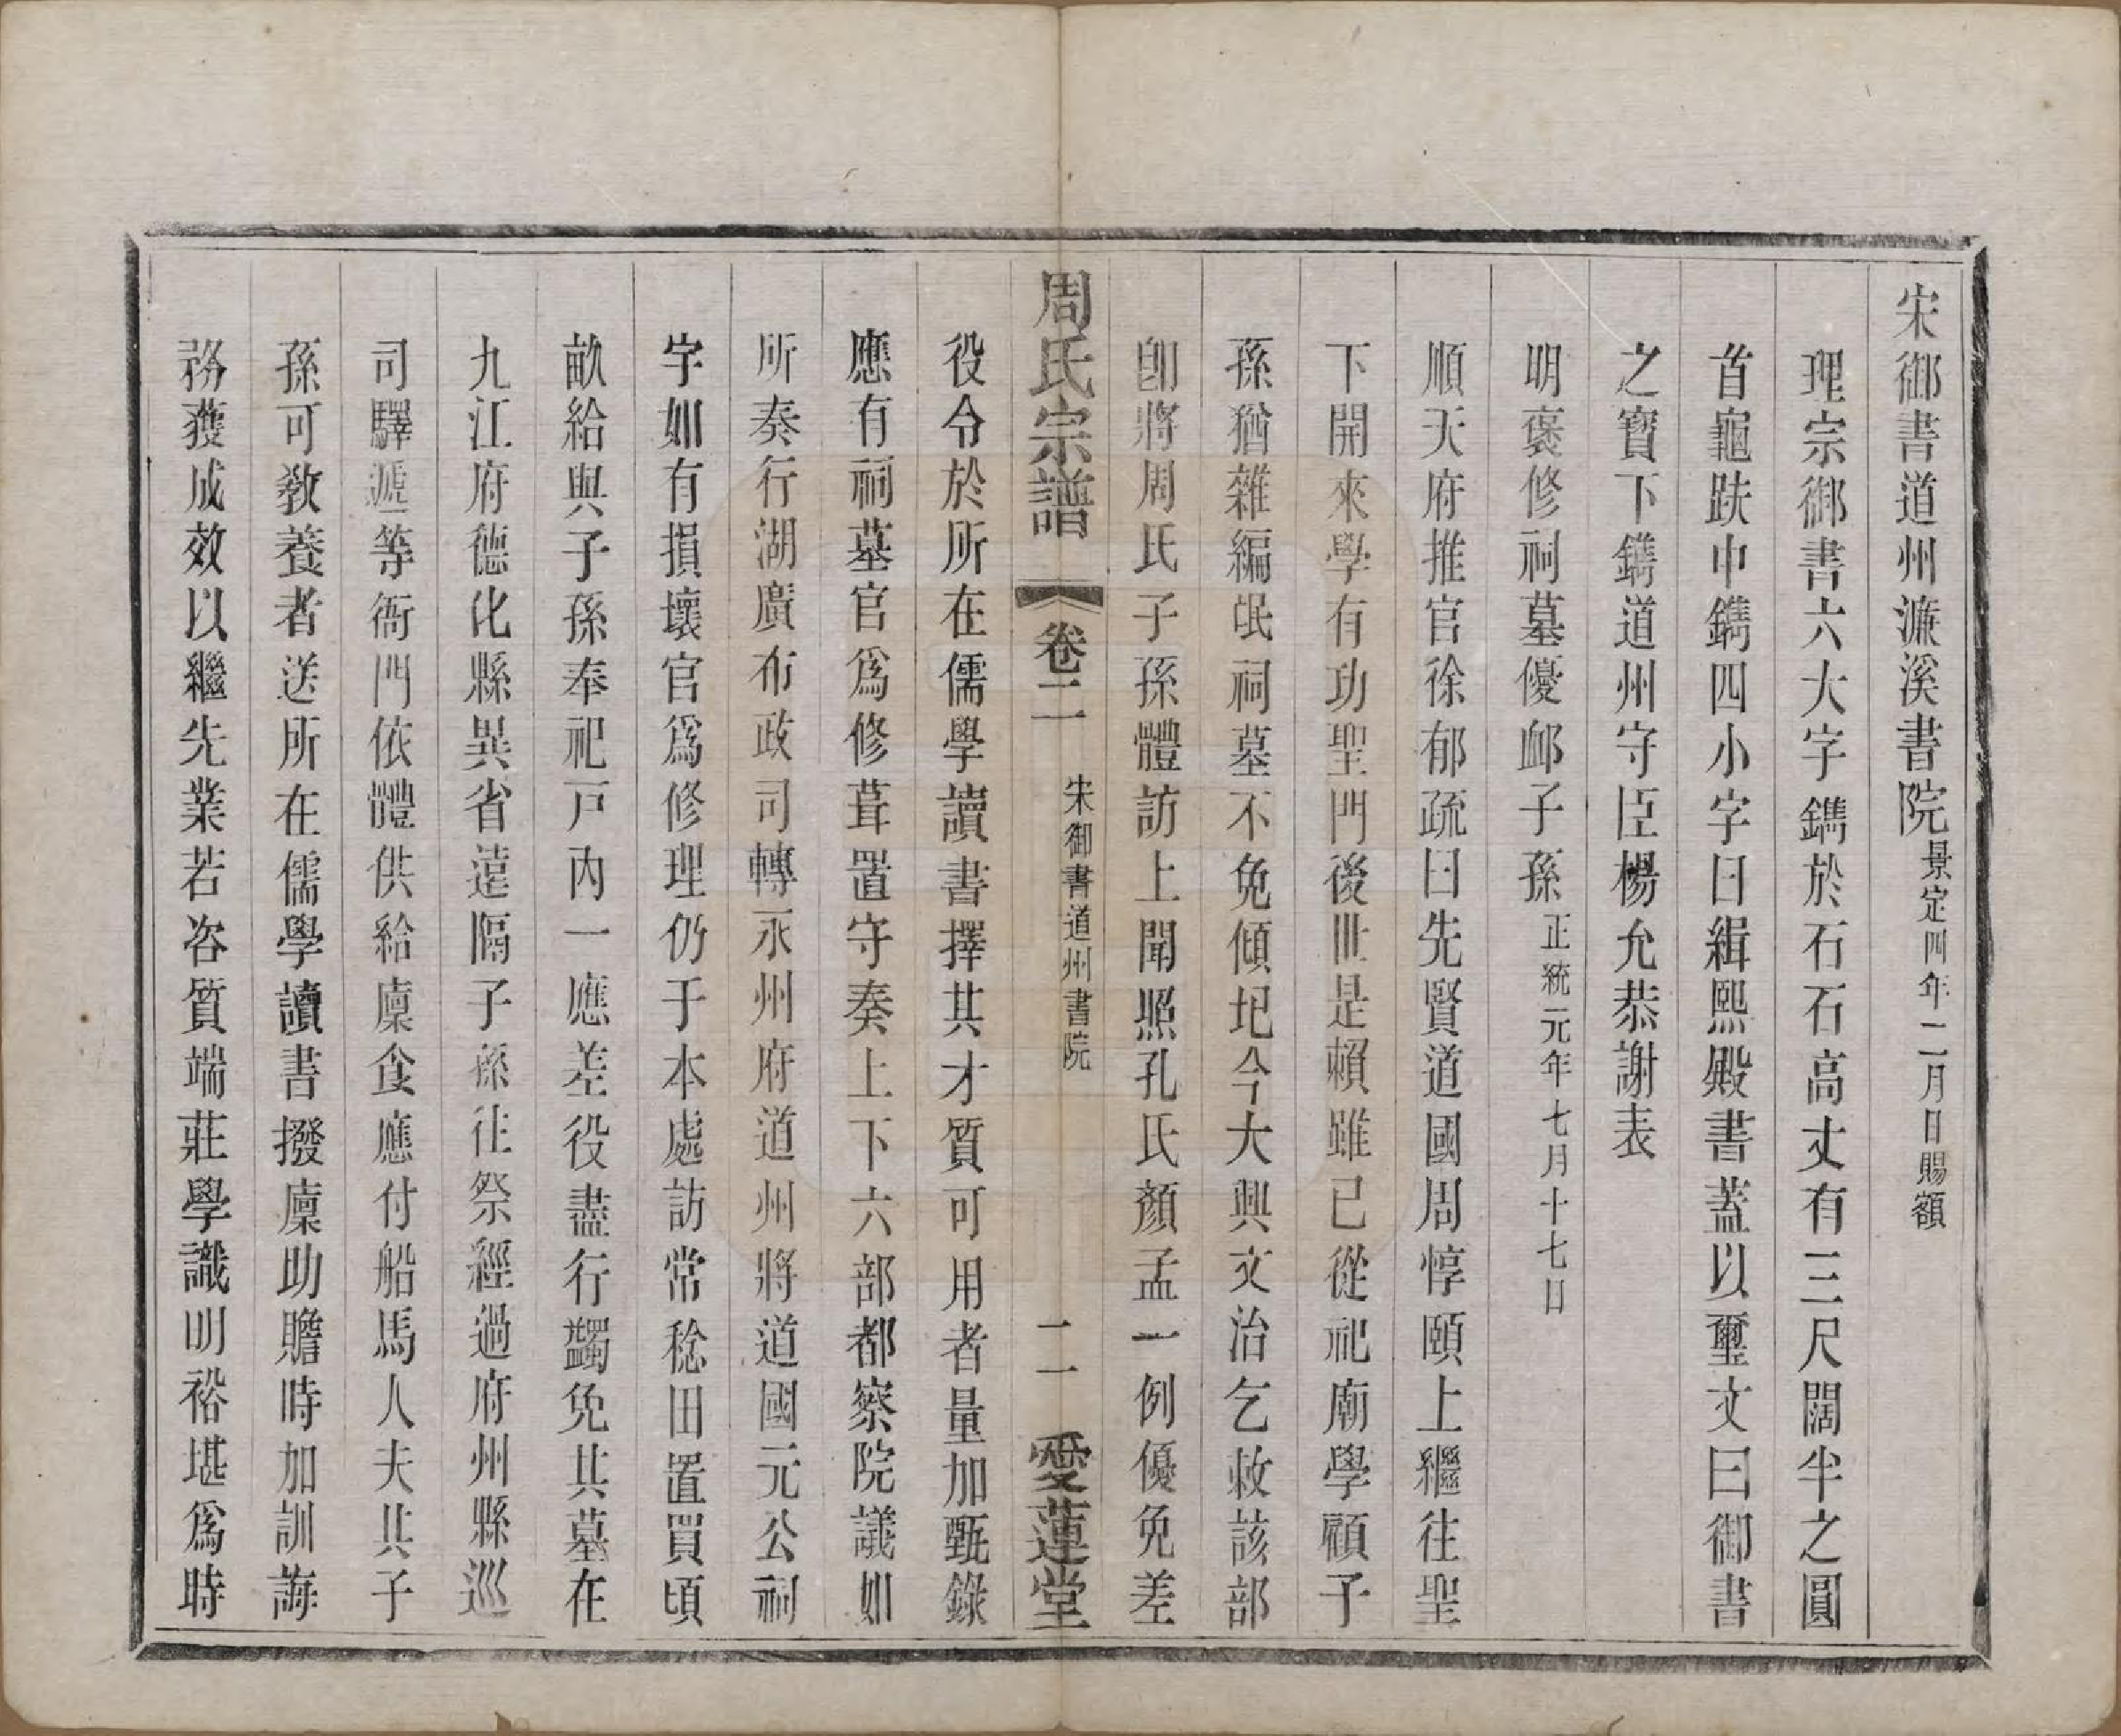 宋御書道州濂溪書院景定四年二月日賜額
理宗御書六大字鐫於石石高丈有三尺闊半之圓
首龜趺中鐫四小字曰緝熙殿書蓋以璽文曰御書
之寶下鐫道州守臣楊允恭謝表
明褒修祠墓優卹子孫正統元年七月十七日
順天府推官徐郁疏曰先賢道國周惇頤上繼往聖
下開來學有功聖門後世是賴雖已從祀廟學顧子
孫猶雜編氓祠墓不免傾圮今大興文治乞敕該部
卽將周氏子孫體訪上聞照孔氏顏孟一例優免差
周氏宗譜 卷二 宋御書道州書院 二 愛蓮堂
役令於所在儒學讀書擇其才質可用者量加甄錄
應有祠墓官爲修葺置守奏上下六部都察院議如
所奏行湖廣布政司轉永州府道州將道國元公祠
宇如有損壞官爲修理仍于本處訪常稔田置買頃
畝給與子孫奉祀戸內一應差役盡行蠲免其墓在
九江府德化縣異省遠隔子孫往祭經過府州縣巡
司驛遞等衙門依體供給廩食應付船馬人夫其子
孫可敎養者送所在儒學讀書撥廩助贍時加訓誨
務獲成效以繼先業若咨質端莊學識明裕堪爲時